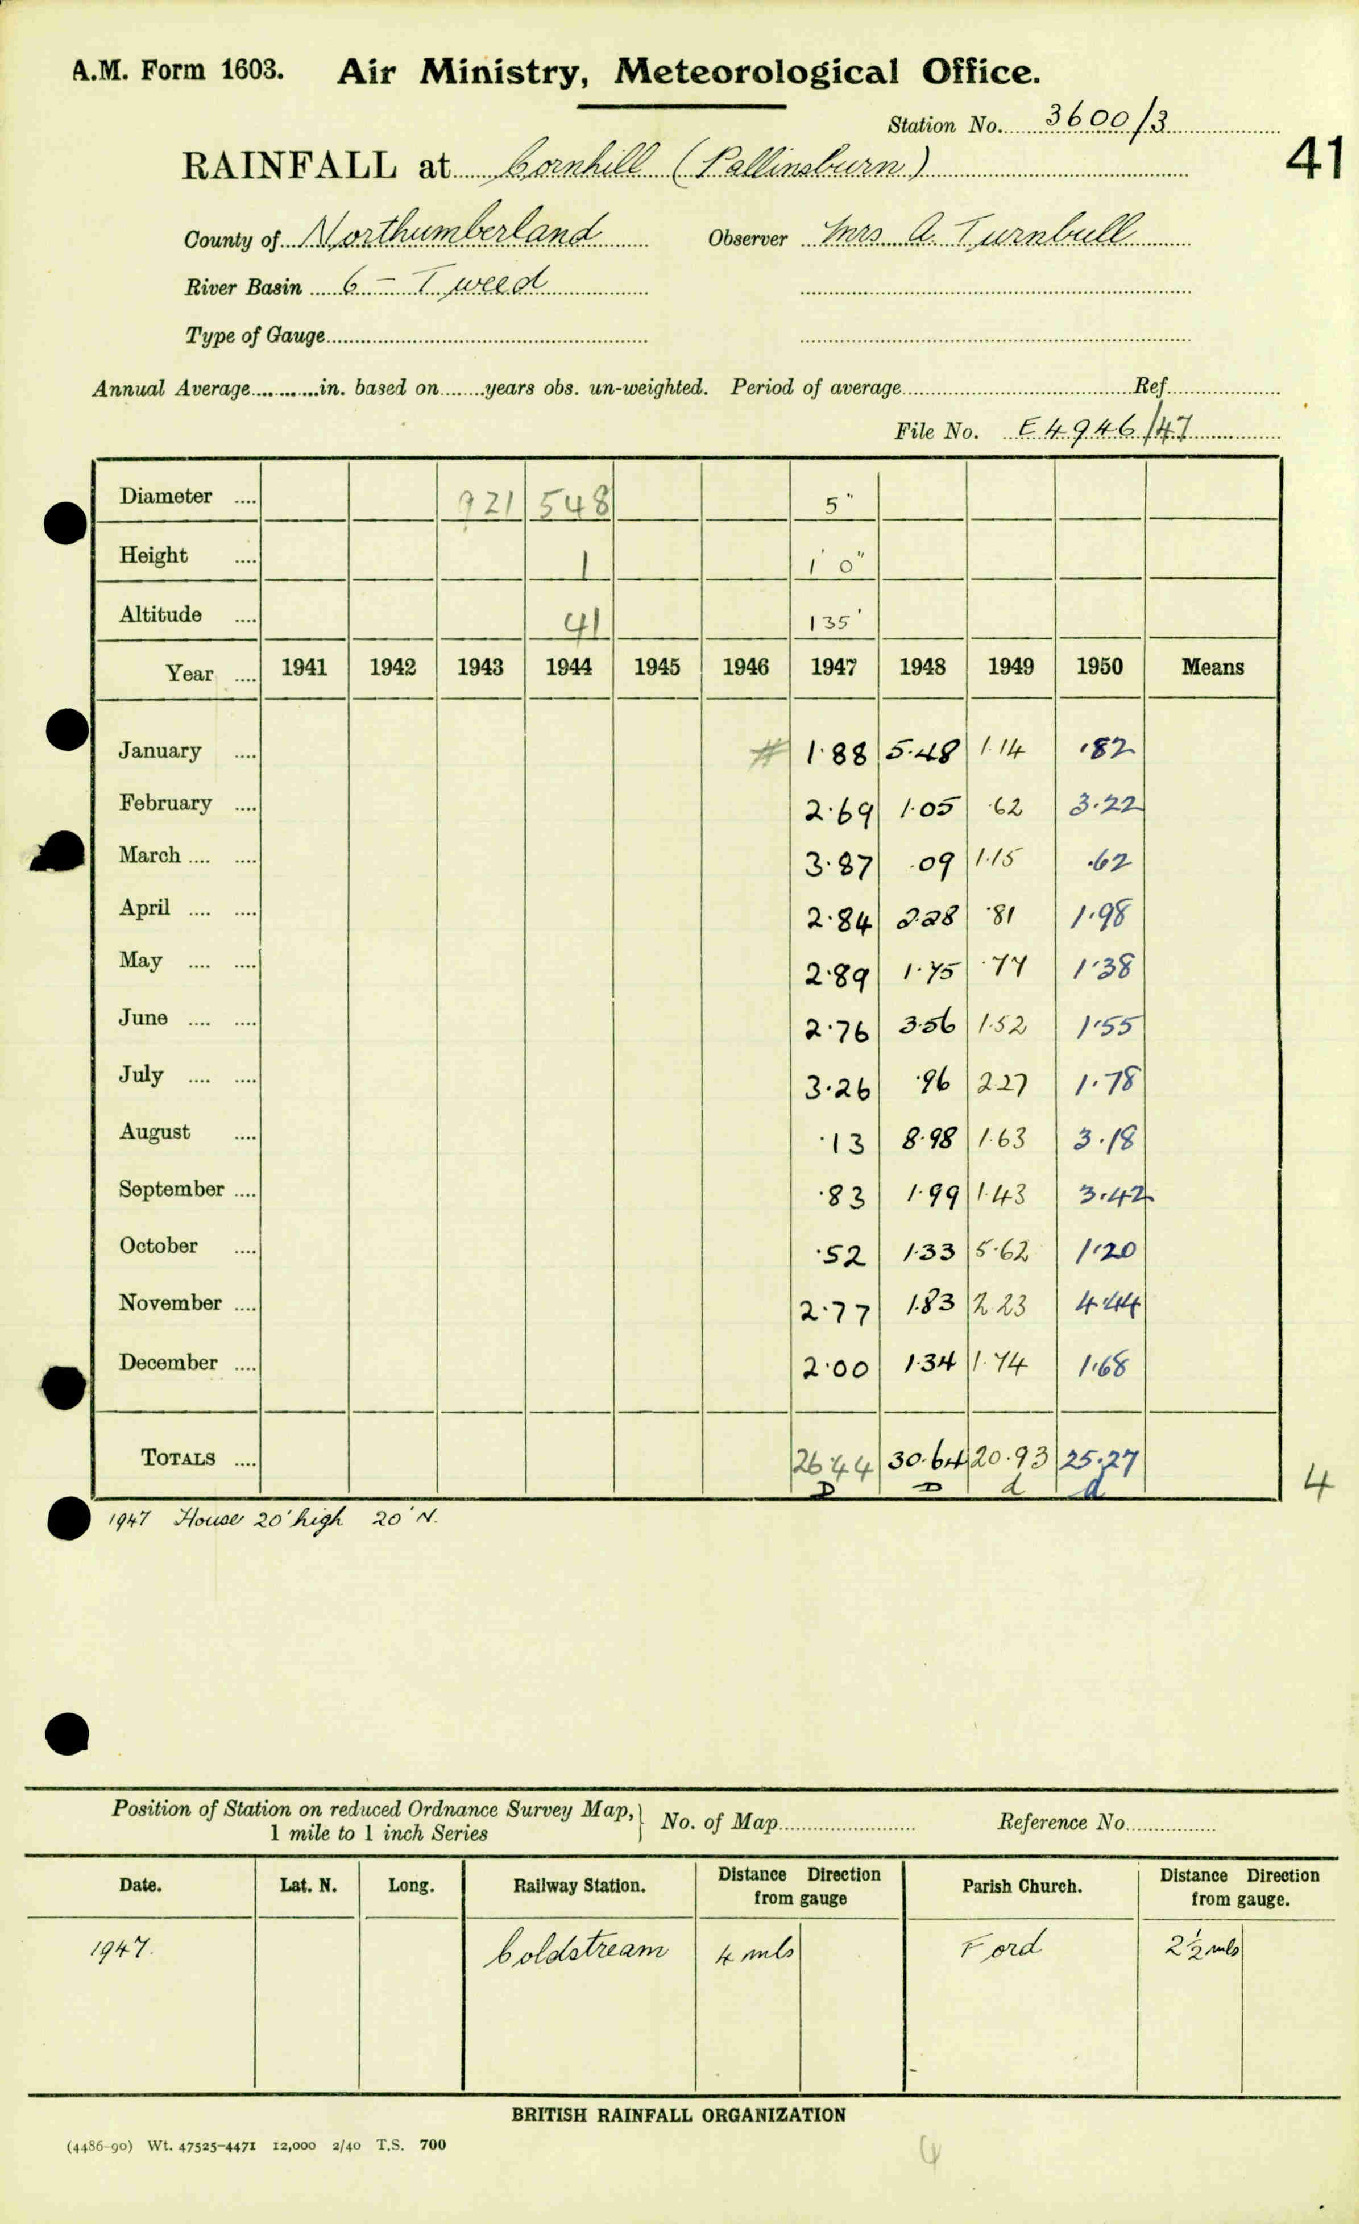 A.M. Form 1603. Air Ministry, Meteorological Office.
Station No. 3600/3
41
RAINFALL at Cornhill (Pallinsburn)
County of Northumberland Observer Mrs A. Turnbull
River Basin 6 - Tweed
Type of Gauge
Annual Average in. based on years obs. un-weighted. Period of average Ref
File No. E4946/47
Diameter 921 548 5"
Height 1 1' 0"
Altitude 41 135'
Year 1941 1942 1943 1944 1945 1946 1947 1948 1949 1950 Means
January # 1.88 5.48 1.14 .82
February 2.69 1.05 .62 3.22
March 3.87 .09 1.15 .62
April 2.84 2.28 .81 1.98
May 2.89 1.75 .77 1.38
June 2.76 3.56 1.52 1.55
July 3.26 .96 2.27 1.78
August .13 8.98 1.63 3.18
September .83 1.99 1.43 3.42
October .52 1.33 5.62 1.20
November 2.77 1.83 2.23 4.44
December 2.00 1.34 1.74 1.68
TOTALS 26.44 30.64 20.93 25.27
D D d d
4
1947 House 20' high 20' N.
Position of Station on reduced Ordnance Survey Map, 1 mile to 1 inch Series } No. of Map Reference No.
Date. Lat. N. Long. Railway Station. Distance Direction from gauge Parish Church. Distance Direction from gauge.
1947. Coldstream 4 mls Ford 2½ mls
BRITISH RAINFALL ORGANIZATION
(4486-90) Wt. 47525-4471 12,000 2/40 T.S. 700